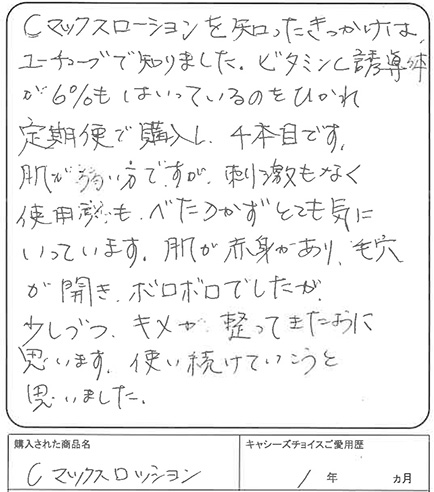 Cマックスローションを知ったきっかけは、
ユーチューブで知りました。ビタミンC誘導体
が6%もはいっているのをひかれ
定期便で購入し、千本目です。
肌が弱い方ですが、刺激もなく
使用感も、べたつかずとても気に
いっています。肌が赤身があり、毛穴
が開き、ボロボロでしたが、
少しづつ、キメが整ってきたように
思います。使い続けていこうと
思いました。
購入された商品名
キャシーズチョイスご愛用歴
Cマックスロッション
1年 ヵ月